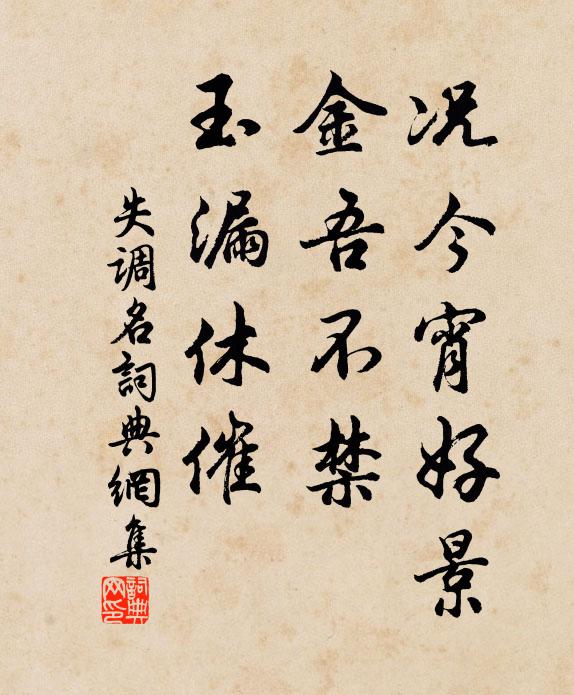 况今宵好景
金吾不禁
玉漏休催
失调名詞典網集
詞典网印